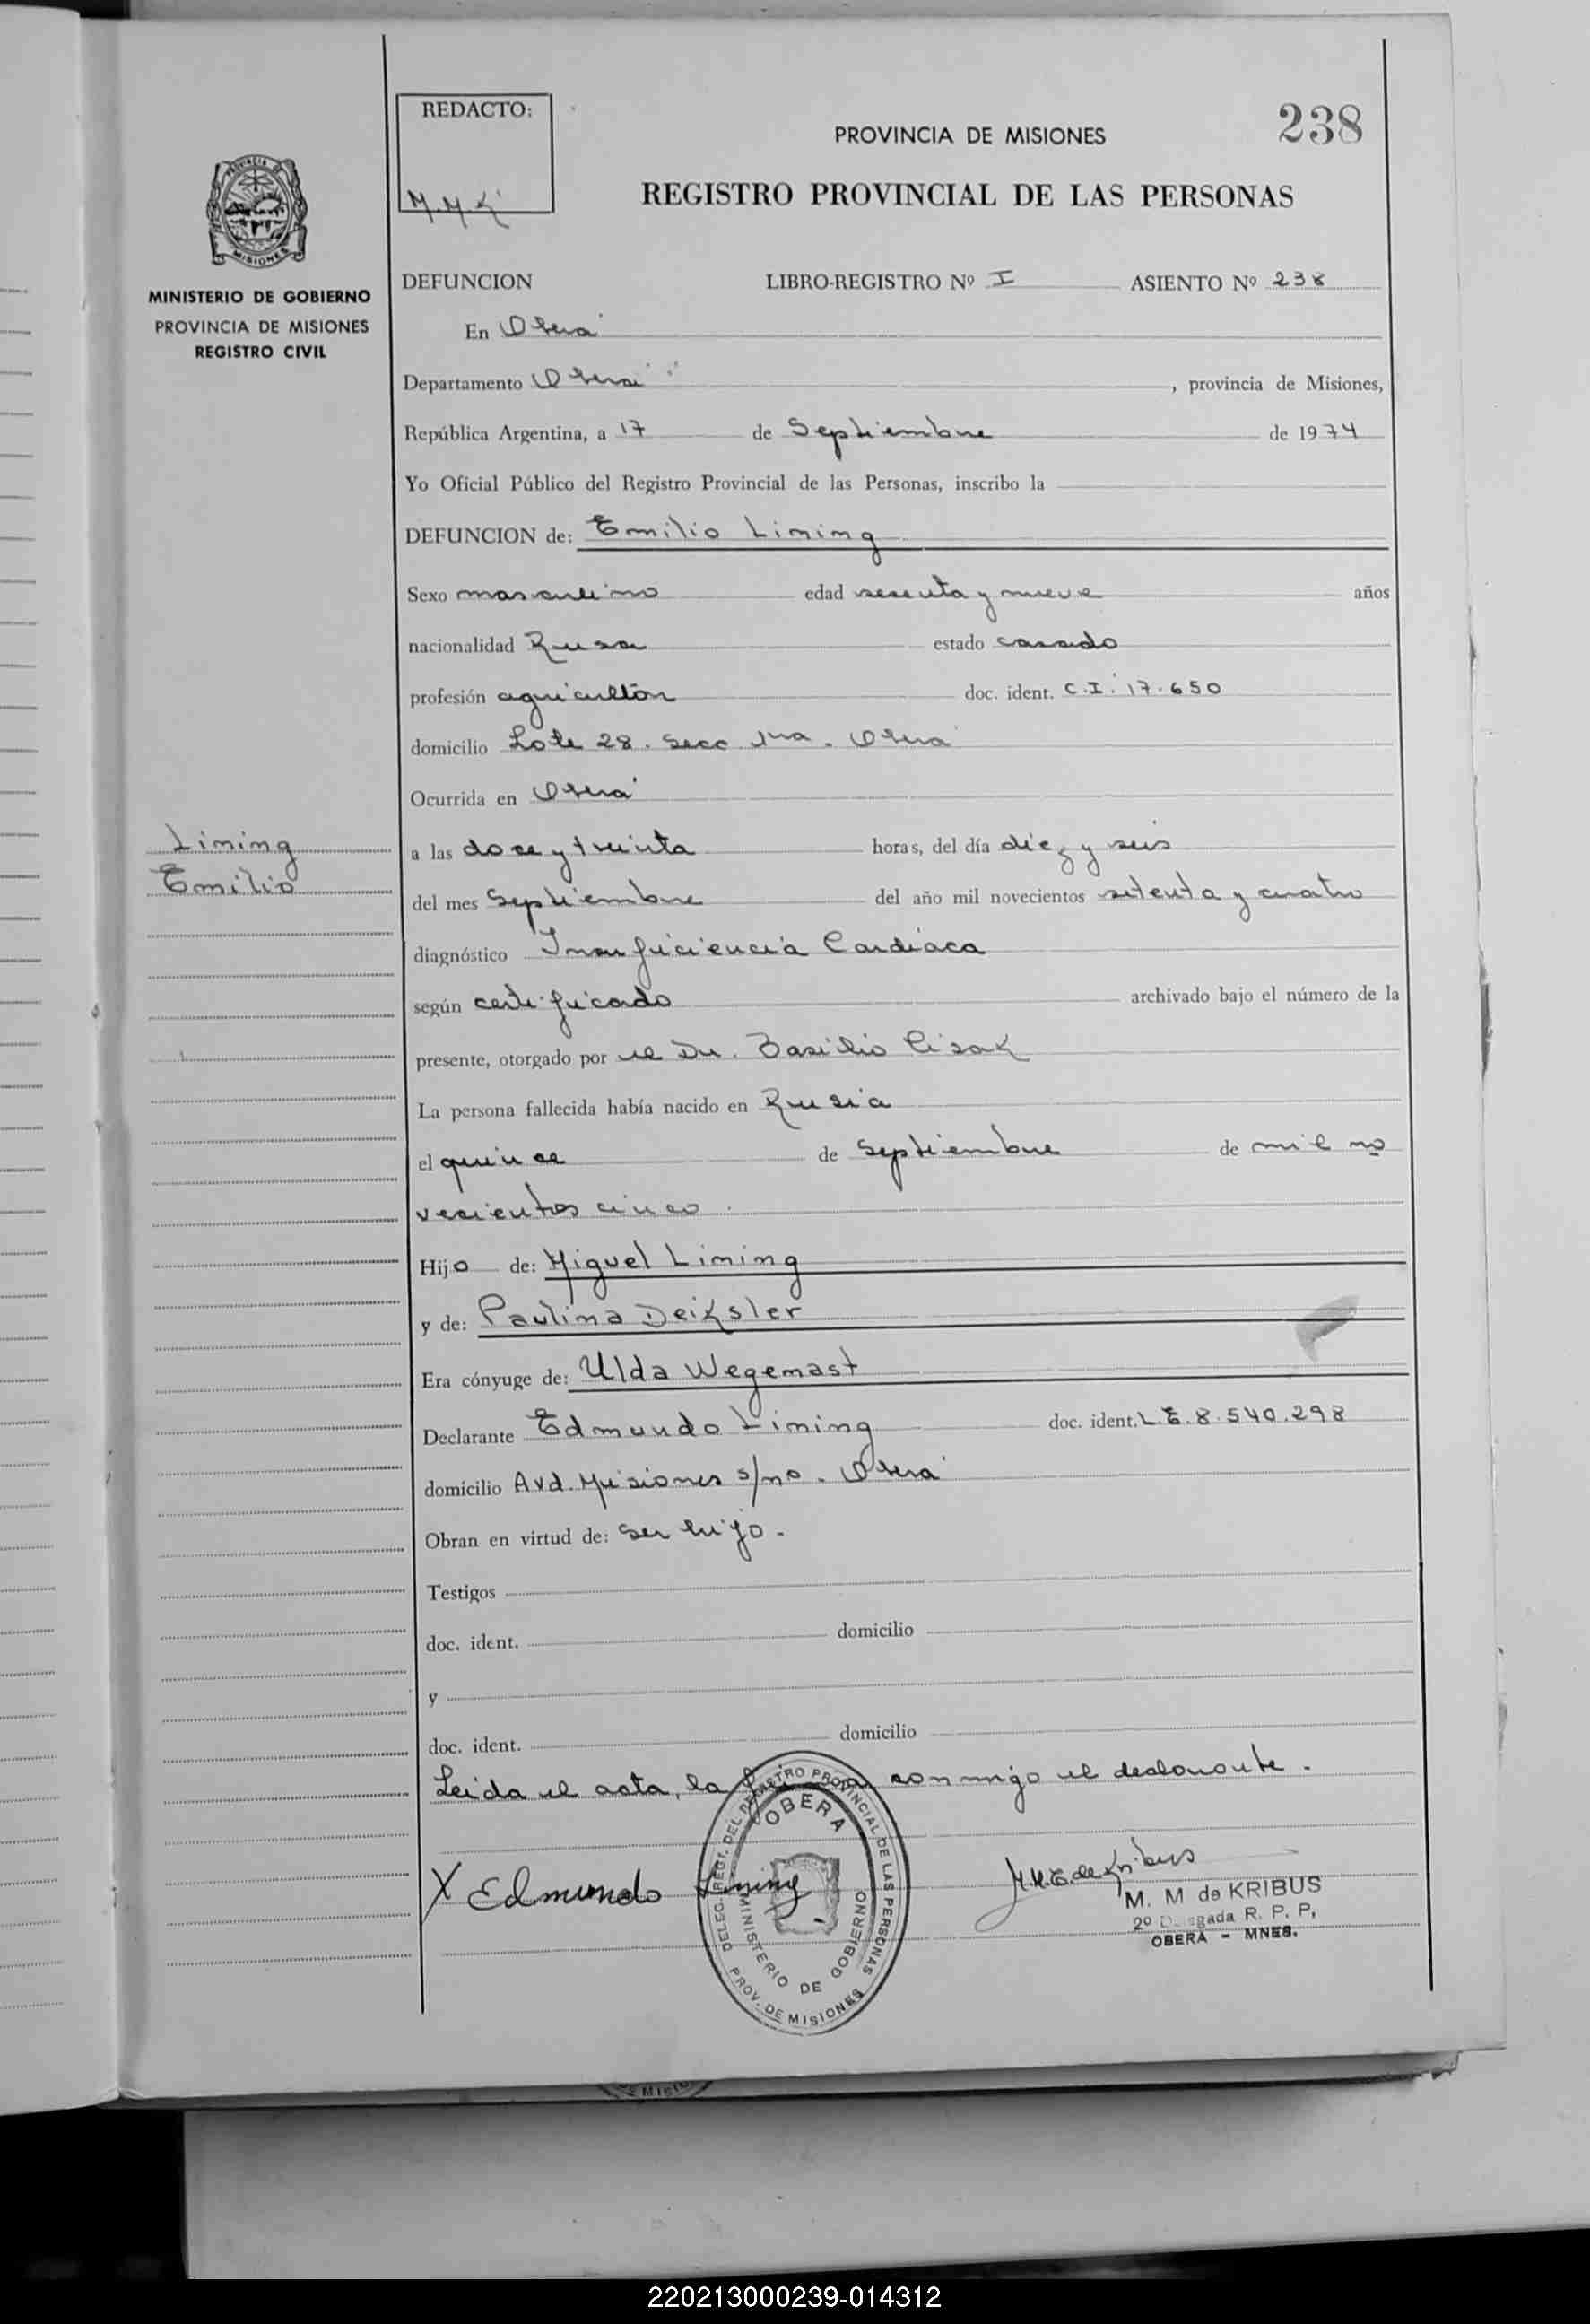 REDACTO:
M.M.K
238
PROVINCIA DE MISIONES
REGISTRO PROVINCIAL DE LAS PERSONAS
PROVINCIA DE
MISIONES
MINISTERIO DE GOBIERNO
PROVINCIA DE MISIONES
REGISTRO CIVIL
DEFUNCION LIBRO-REGISTRO Nº I ASIENTO Nº 238
En Oberá
Departamento Oberá, provincia de Misiones,
República Argentina, a 17 de Septiembre de 1974
Yo Oficial Público del Registro Provincial de las Personas, inscribo la
DEFUNCION de: Emilio Lining
Sexo masculino edad sesenta y nueve años
nacionalidad Rusa estado casado
profesión agricultor doc. ident. C.I. 17.650
domicilio Lote 28. Secc 1ra. Oberá
Ocurrida en Oberá
Lining
Emilio
a las doce y treinta horas, del día diez y seis
del mes Septiembre del año mil novecientos setenta y cuatro
diagnóstico Insuficiencia Cardíaca
según certificado archivado bajo el número de la
presente, otorgado por el Dr. Basilio Cisak
La persona fallecida había nacido en Rusia
el quince de Septiembre de mil no
vecientos cinco.
Hijo de: Miguel Lining
y de: Paulina Deiksler
Era cónyuge de: Ulda Wegemast
Declarante Edmundo Lining doc. ident. L.E. 8.540.298
domicilio Avd. Misiones s/no. Oberá
Obran en virtud de: Ser hijo.
Testigos
doc. ident. domicilio
y
doc. ident. domicilio
Leida el acta, la firma conmigo el declarante.
DELEG. REGT. DEL REGISTRO PROVINCIAL DE LAS PERSONAS
OBERA
MINISTERIO DE GOBIERNO
PROV. DE MISIONES
X Edmundo Lining
M.M. de Kribus
M. M de KRIBUS
2º gada R. P. P,
OBERA - MNES.
220213000239-014312